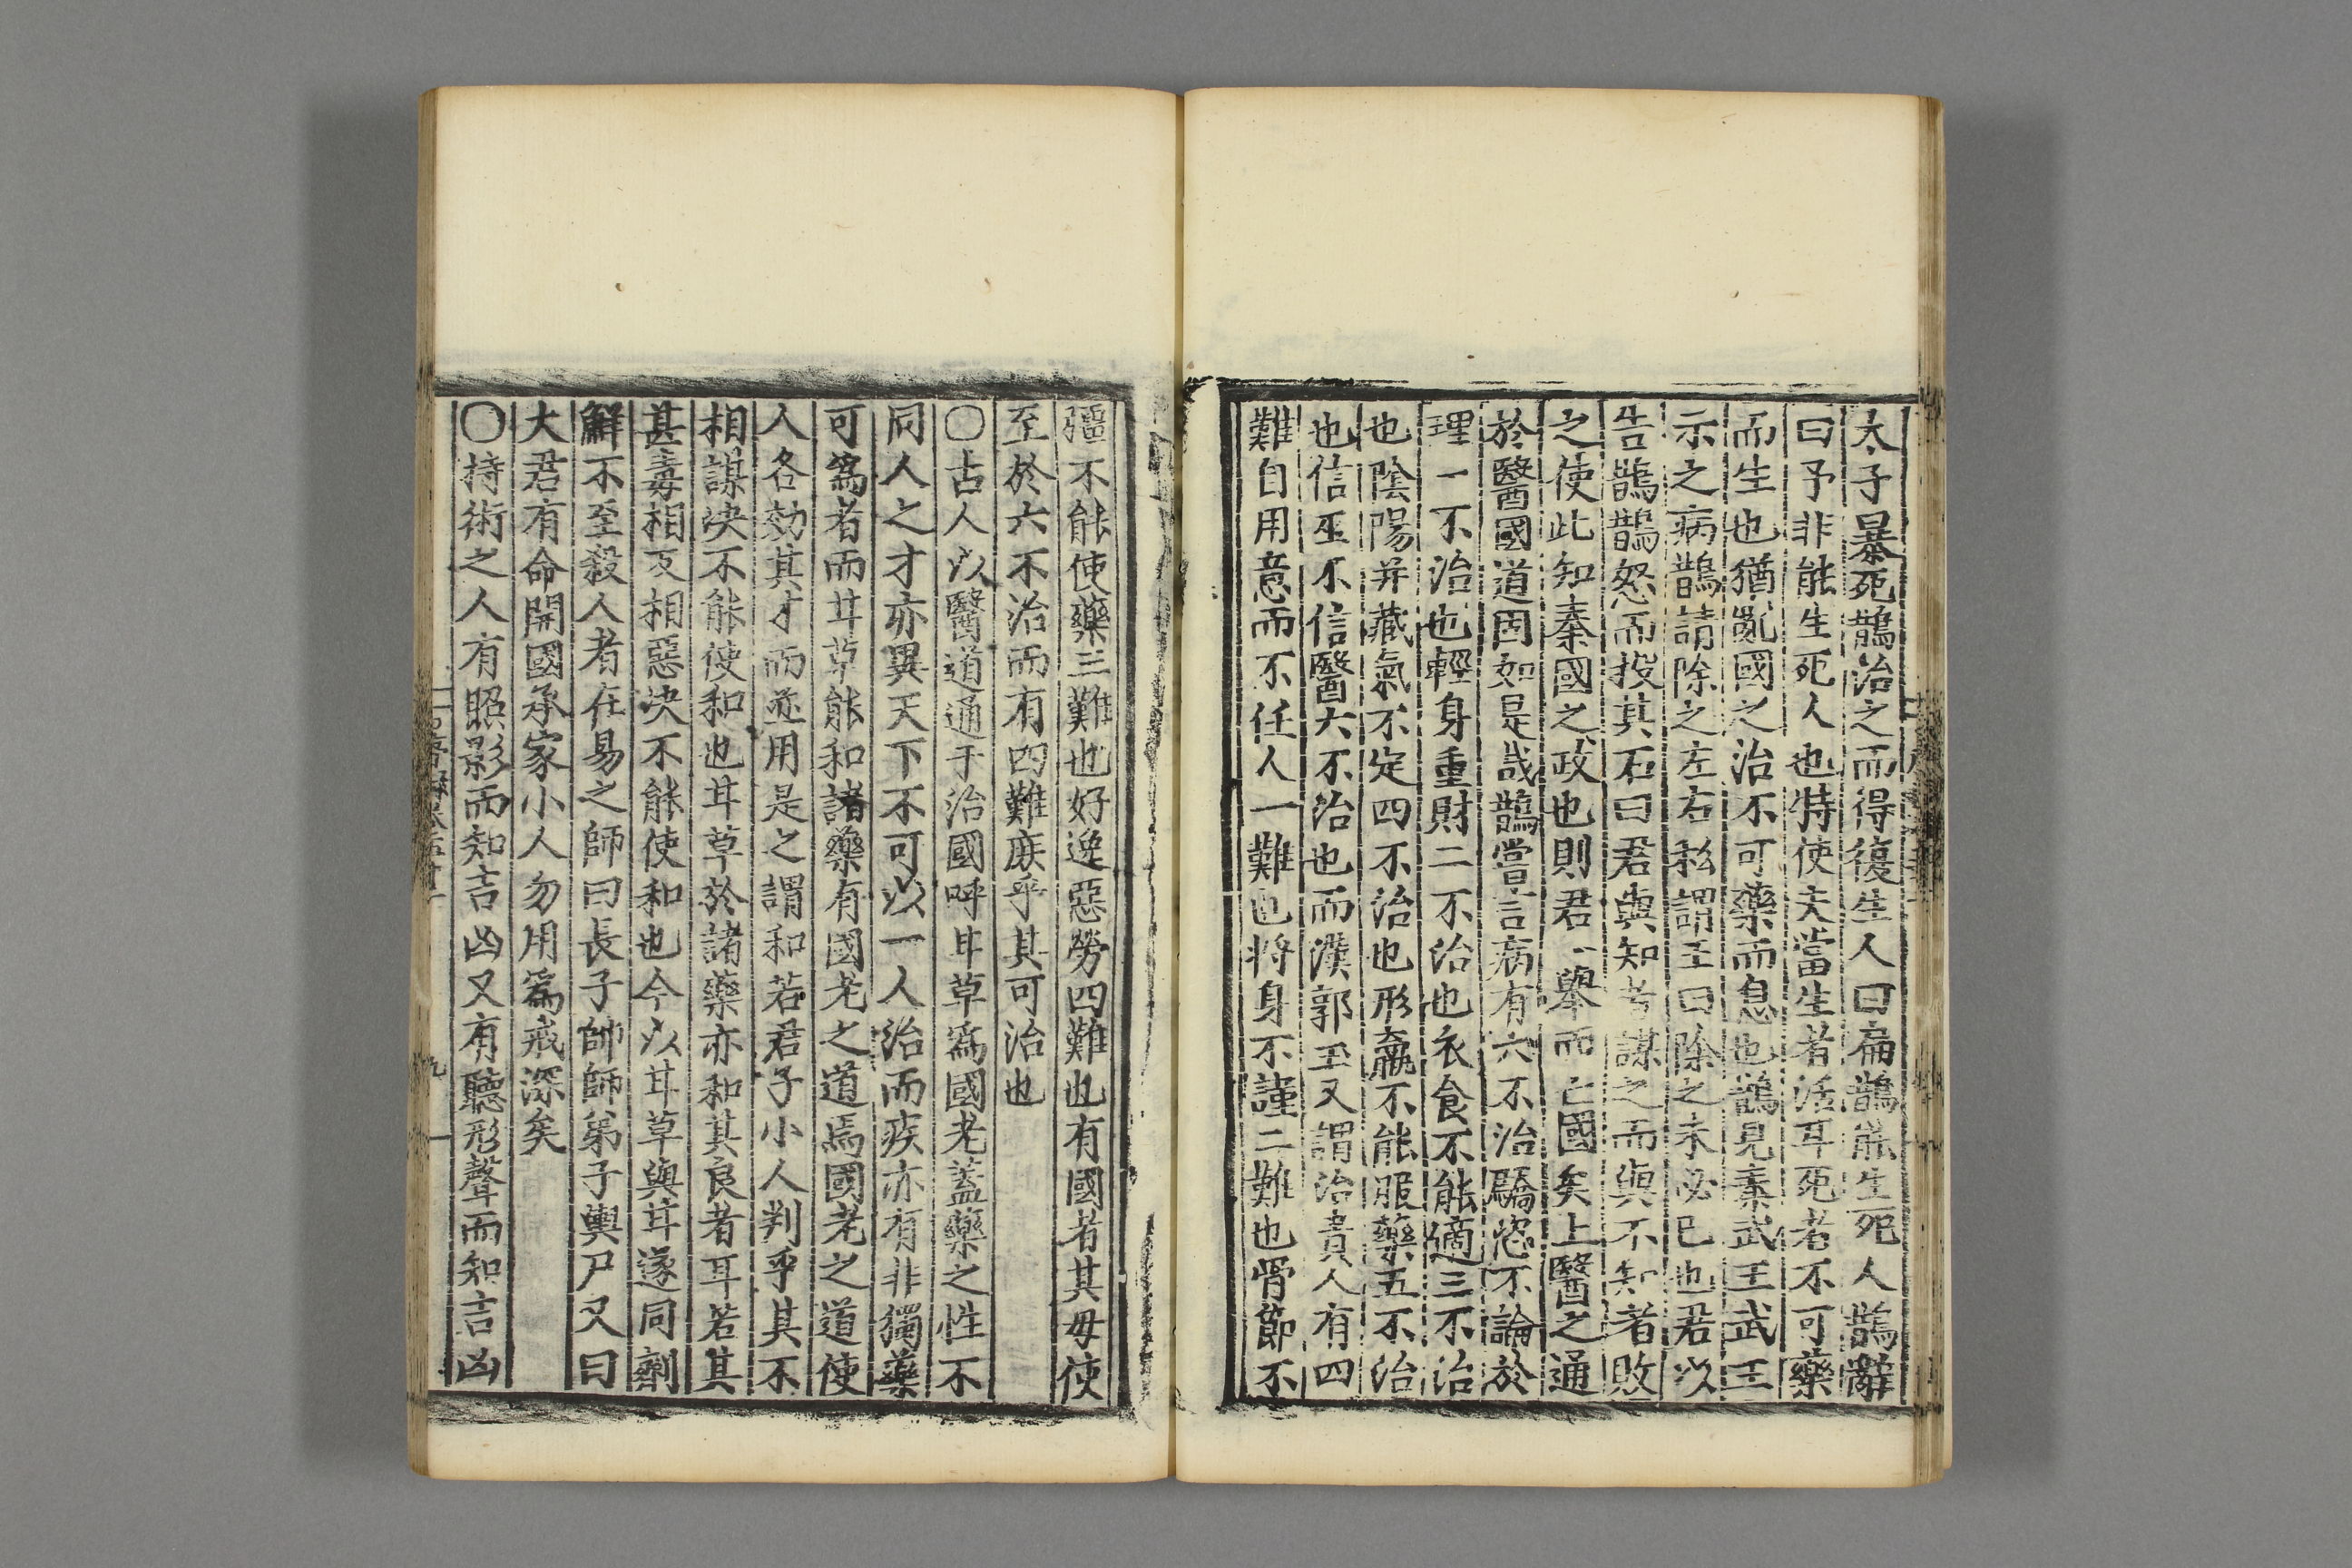 太子暴死鵲治之而得復生人曰扁鵲能生死人鵲辭
曰予非能生死人也特使夫當生者活耳死者不可藥
而生也猶亂國之治不可藥而息也鵲見秦武王武王
示之病鵲請除之左右私謂王曰除之未必已也君以
告鵲鵲怒而投其石曰君與知者謀之而與不知者敗
之使此知秦國之政也則君一舉而亡國矣上醫之通
於醫國道固如是哉鵲嘗言病有六不治驕恣不論於
理一不治也輕身重財二不治也衣食不能適三不治
也陰陽并藏氣不定四不治也形羸不能服藥五不治
也信巫不信醫六不治也而漢郭玉又謂治貴人有四
難自用意而不任人一難也將身不謹二難也骨節不
彊不能使藥三難也好逸惡勞四難也有國者其毋使
至於六不治而有四難庶乎其可治也
〇古人以醫道通于治國呼甘草為國老蓋藥之性不
同人之才亦異天下不可以一人治而疾亦有非獨藥
可爲者而甘草能和諸藥有國老之道焉國老之道使
人各効其才而並用是之謂和若君子小人判乎其不
相謀决不能使和也甘草於諸藥亦和其良者耳若其
甚毒相反相惡决不能使和也今以甘草與甘遂同劑
鮮不至殺人者在易之師曰長子帥師弟子輿尸又曰
大君有命開國承家小人勿用爲戒深矣
〇持術之人有照影而知吉凶又有聽形聲而知吉凶
九